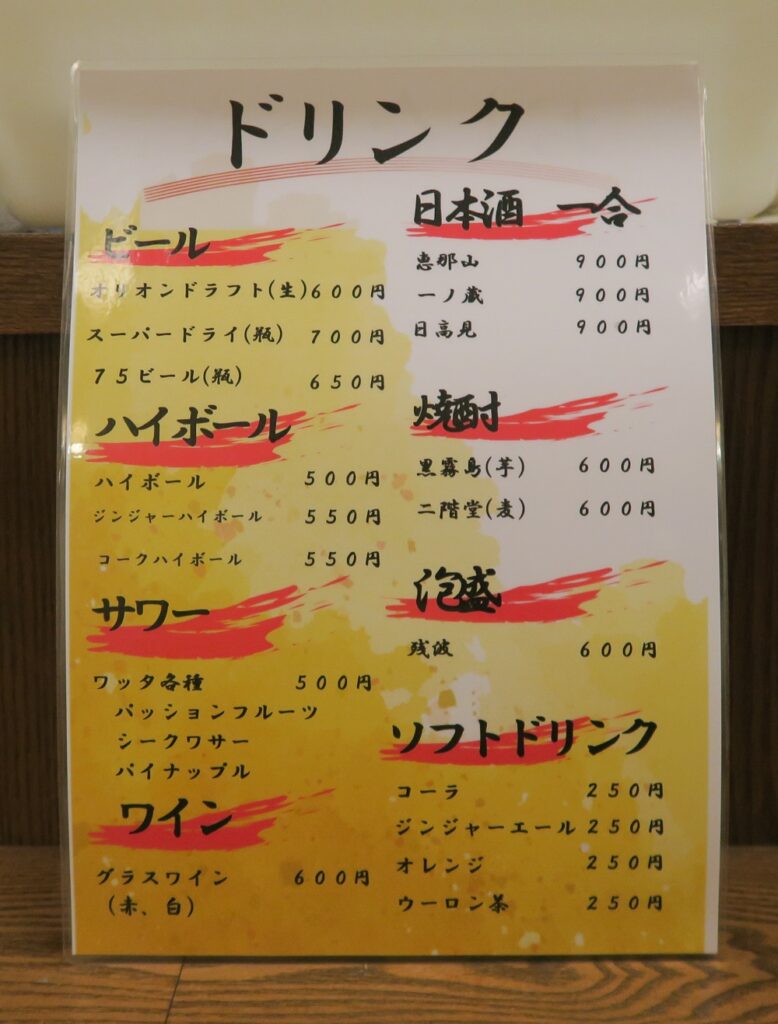 ドリンク
ビール
オリオンドラフト(生)600円
スーパードライ(瓶) 700円
75ビール(瓶) 650円
ハイボール
ハイボール 500円
ジンジャーハイボール 550円
コークハイボール 550円
サワー
ワッタ各種 500円
パッションフルーツ
シークワサー
パイナップル
ワイン
グラスワイン 600円
(赤、白)
日本酒 一合
恵那山 900円
一ノ蔵 900円
日高見 900円
焼酎
黒霧島(芋) 600円
二階堂(麦) 600円
泡盛
残波 600円
ソフトドリンク
コーラ 250円
ジンジャーエール 250円
オレンジ 250円
ウーロン茶 250円